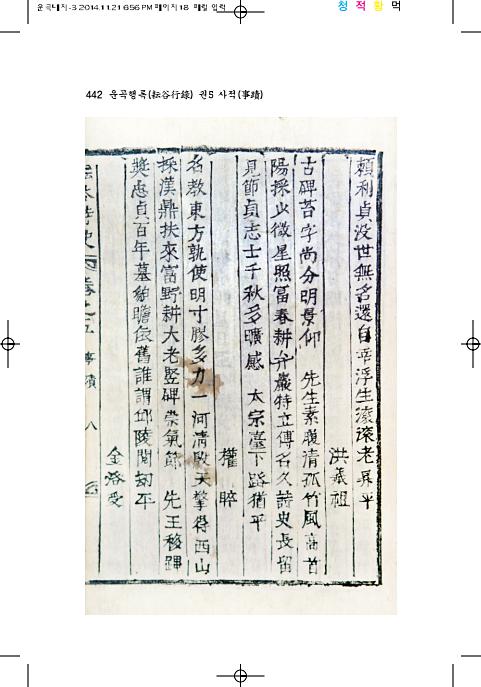 운곡대지-3 2014.11.21 6:56 PM 페이지18 매킬 입력
청 적 황 먹
442 운곡행록(耘谷行錄) 권5 사적(事蹟)
頼利貞没世無名還自幸浮生滚滚老昇平
洪羲祖
古碑苔字尚分明景仰 先生素履清孤竹風高首
陽採少微星照富春耕弁巖特立傳名久詩史長留
見節貞志士千秋多曠感 太宗臺下路猶平
權晬
名教東方孰使明寸膠多力一河清敗天擎得西山
採漢鼎扶來富野耕大老竪碑崇氣節 先王移蹕
奬忠貞百年墓貌瞻依舊誰謂邱陵閱刼平
金洛受
史 卷之五 事蹟 八